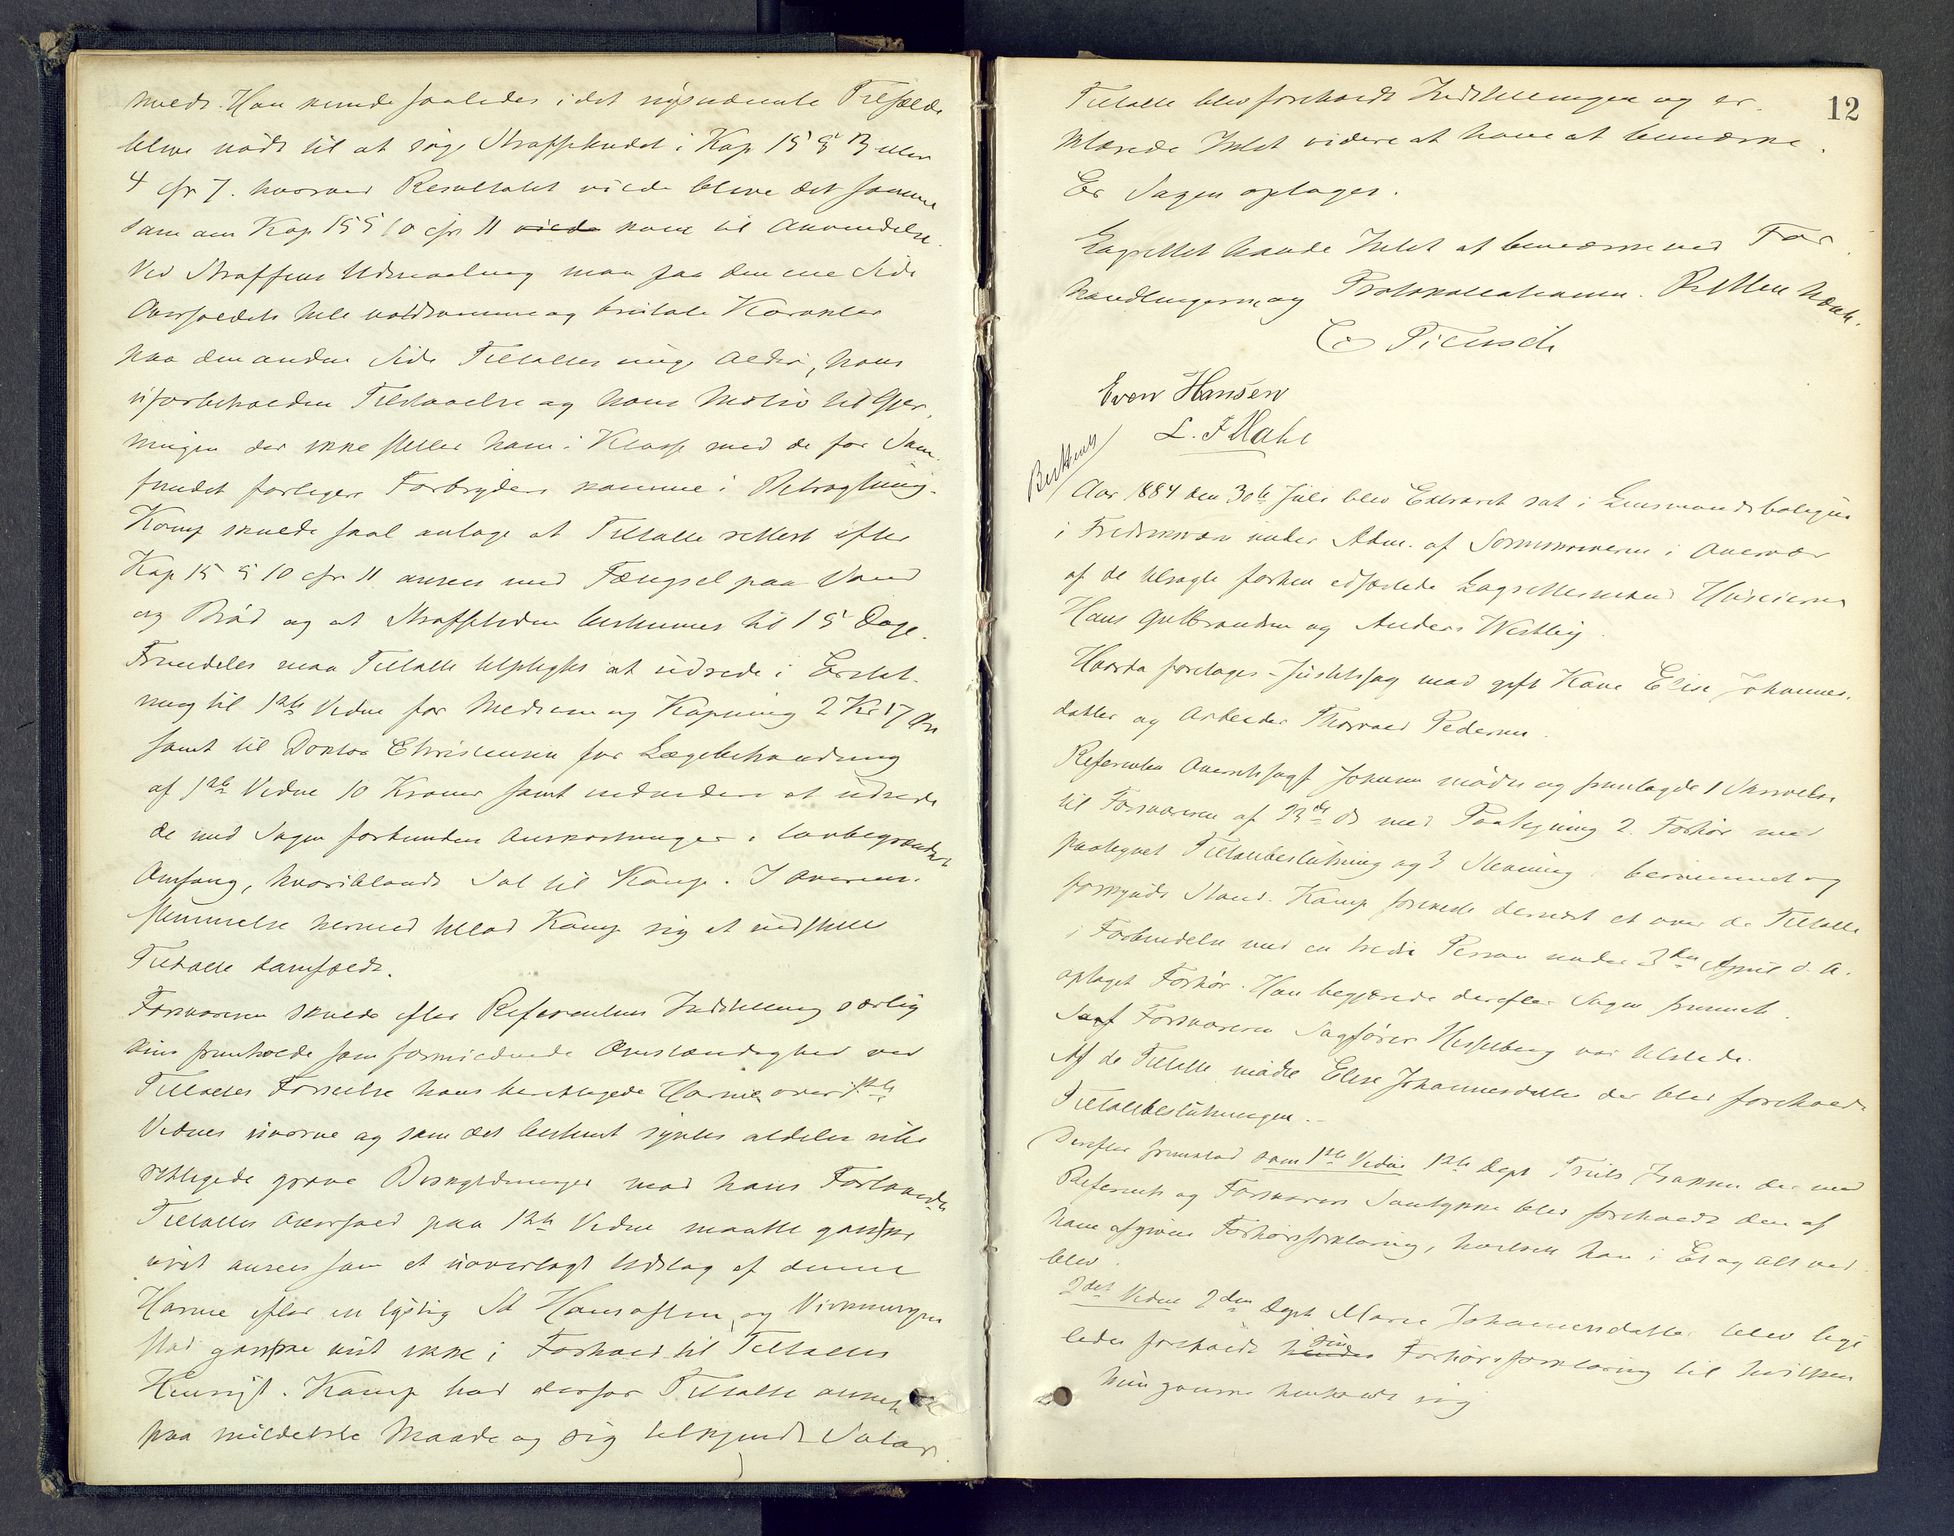 meldt. Han kunde saaledes i det nysnævnte Tilfælde
blive nødt til at søge Straffebudet i Kap 15 § 3 eller
4 cfr 7. hvorved Resultatet vilde blive det samme
som om Kap 15 § 10 cfr 11 vilde kom til Anvendelse.
Ved Straffens Udmaaling maa paa den ene Side
Overfaldets hele voldsomme og brutale Karakter
paa den anden Side Tiltaltes unge Alder, hans
uforbeholdne Tilstaaelse og hans Motiv til Gjer-
ningen der ikke stiller ham i Klasse med de for Sam-
fundet farligere Forbrydere komme i Betragtning.
Komp skulde saal antage at Tiltalte rettest efter
Kap 15 § 10 cfr 11 ansees med Fængsel paa Vand
og Brød og at Straffetiden bestemmes til 15 Dage.
Fremdeles maa Tiltalte tilpligtes at udrede i Erstat-
ning til 1ste Vidne for Medicin og Kopning 2 Kr 17 Øre
samt til Doktor Christensen for Lægebehandling
af 1ste Vidne 10 Kroner samt endvidere at udrede
de med Sagen forbundne Omkostninger i lovbegrændset
Omfang, hvoriblandt Sal til Komp. I Overens-
stemmelse hermed tillod Komp sig at indstille
Tiltalte domfældt.
Forsvareren skulde efter Referentens Indstilling særlig
kun fremholde som formildende Omstændighed ved
Tiltaltes Forseelse hans berettigede Harme over 1ste
Vidnes uvorne og som det bestemt syntes aldeles ube-
rettigede grove Beskyldninger mod hans Forlovede
Tiltaltes Overfald paa 1ste Vidne maatte ganske
vist ansees som et uoverlagt Udslag af denne
Harme efter en lystig St Hansaften, og Virkningen
stod ganske vist ikke i Forhold til Tiltaltes
Hensigt. Komp bad derfor Tiltalte anseet
paa mildeste Maade og sig tilkjendt Salar.
12
Tiltalte blev foreholdt Indstillingen og er-
klærede Intet videre at have at bemærke.
Er Sagen optaget.
Lagrettet havde Intet at bemærke ved For-
handlingerne og Protokollationen. Retten hævet.
Even Hansen
Aar 1884 den 30te Juli blev Extraret sat i Lensmandsboligen
i Fredriksværn under Adm. af Sorenskriveren i Overvær
af de tilsagte forhen edfæstede Lagrettesmænd Huseierne
Hans Gulbrandsen og Anders Westby.
Hvorda foretages Justitssag mod gift Kone Elise Johannes-
datter og Arbeider Thorvald Pedersen.
Referenten Overretssagf Johnsen mødte og fremlagde 1 Skrivelse
til Forsvareren af 23de ds med Paategning 2. Forhør med
paategnet Tiltalebeslutning og 3 Stevning i berammet og
forkyndt Stand. Komp foreviste dernæst et over de Tiltalte
i Forbindelse med en tredie Person under 3die April d. A.
optaget Forhør. Han begjærede derefter Sagen fremmet.
Som Forsvarer Sagfører Hesselberg var tilstede.
Af de Tiltalte mødte Elise Johannesdatter der blev foreholdt
Tiltalebeslutningen.
Derefter fremstod som 1ste Vidne 1ste Dept Friits Isaksen der med
Referents og Forsvarers Samtykke blev foreholdt den af
ham afgivne Forhørsforklaring, hvilken han i Et og Alt ved-
blev.
2det Vidne 2den Dept Maren Johannesdatter blev lige-
ledes foreholdt hendes sin Forhørsforklaring til hvilken
hun ganske henholdt sig